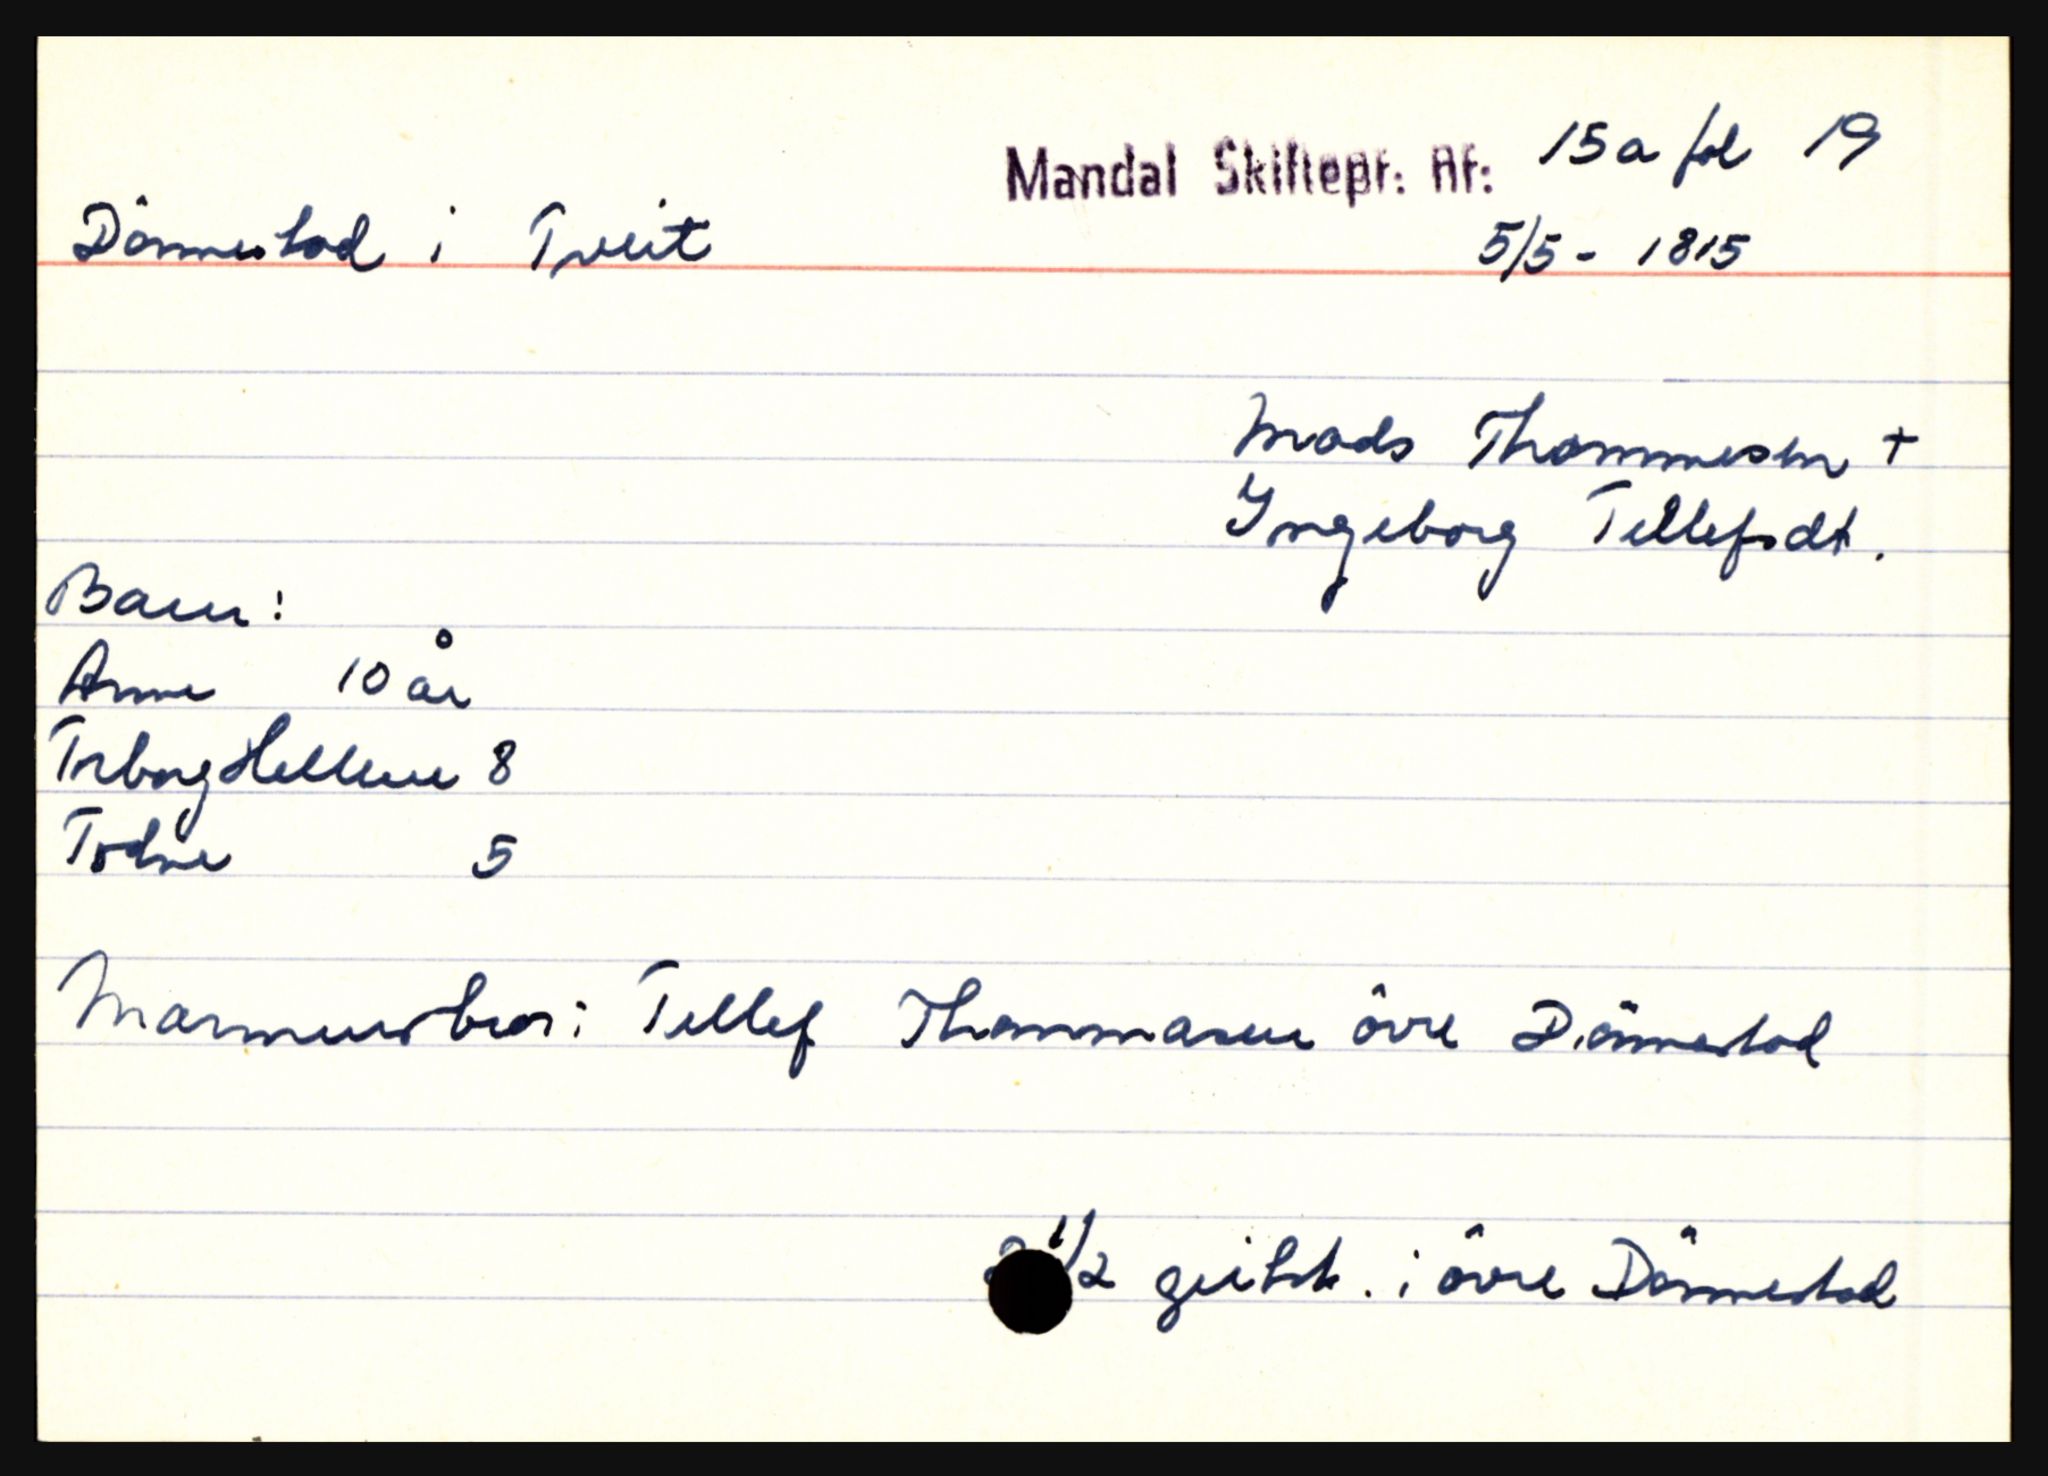 Mandal Skiftepr. Nr: 15a fol 19
Dønnestad i Tveit 5/5 - 1815
Mads Thommesen +
Yngeborg Tellefsdt.
Barn:
Anne 10 år
Torborg Hellene 8
Todne 5
Mannens bror: Tellef Thommasen øvre Dønnestad
2 1/2 geitsk. i øvre Dønnestad